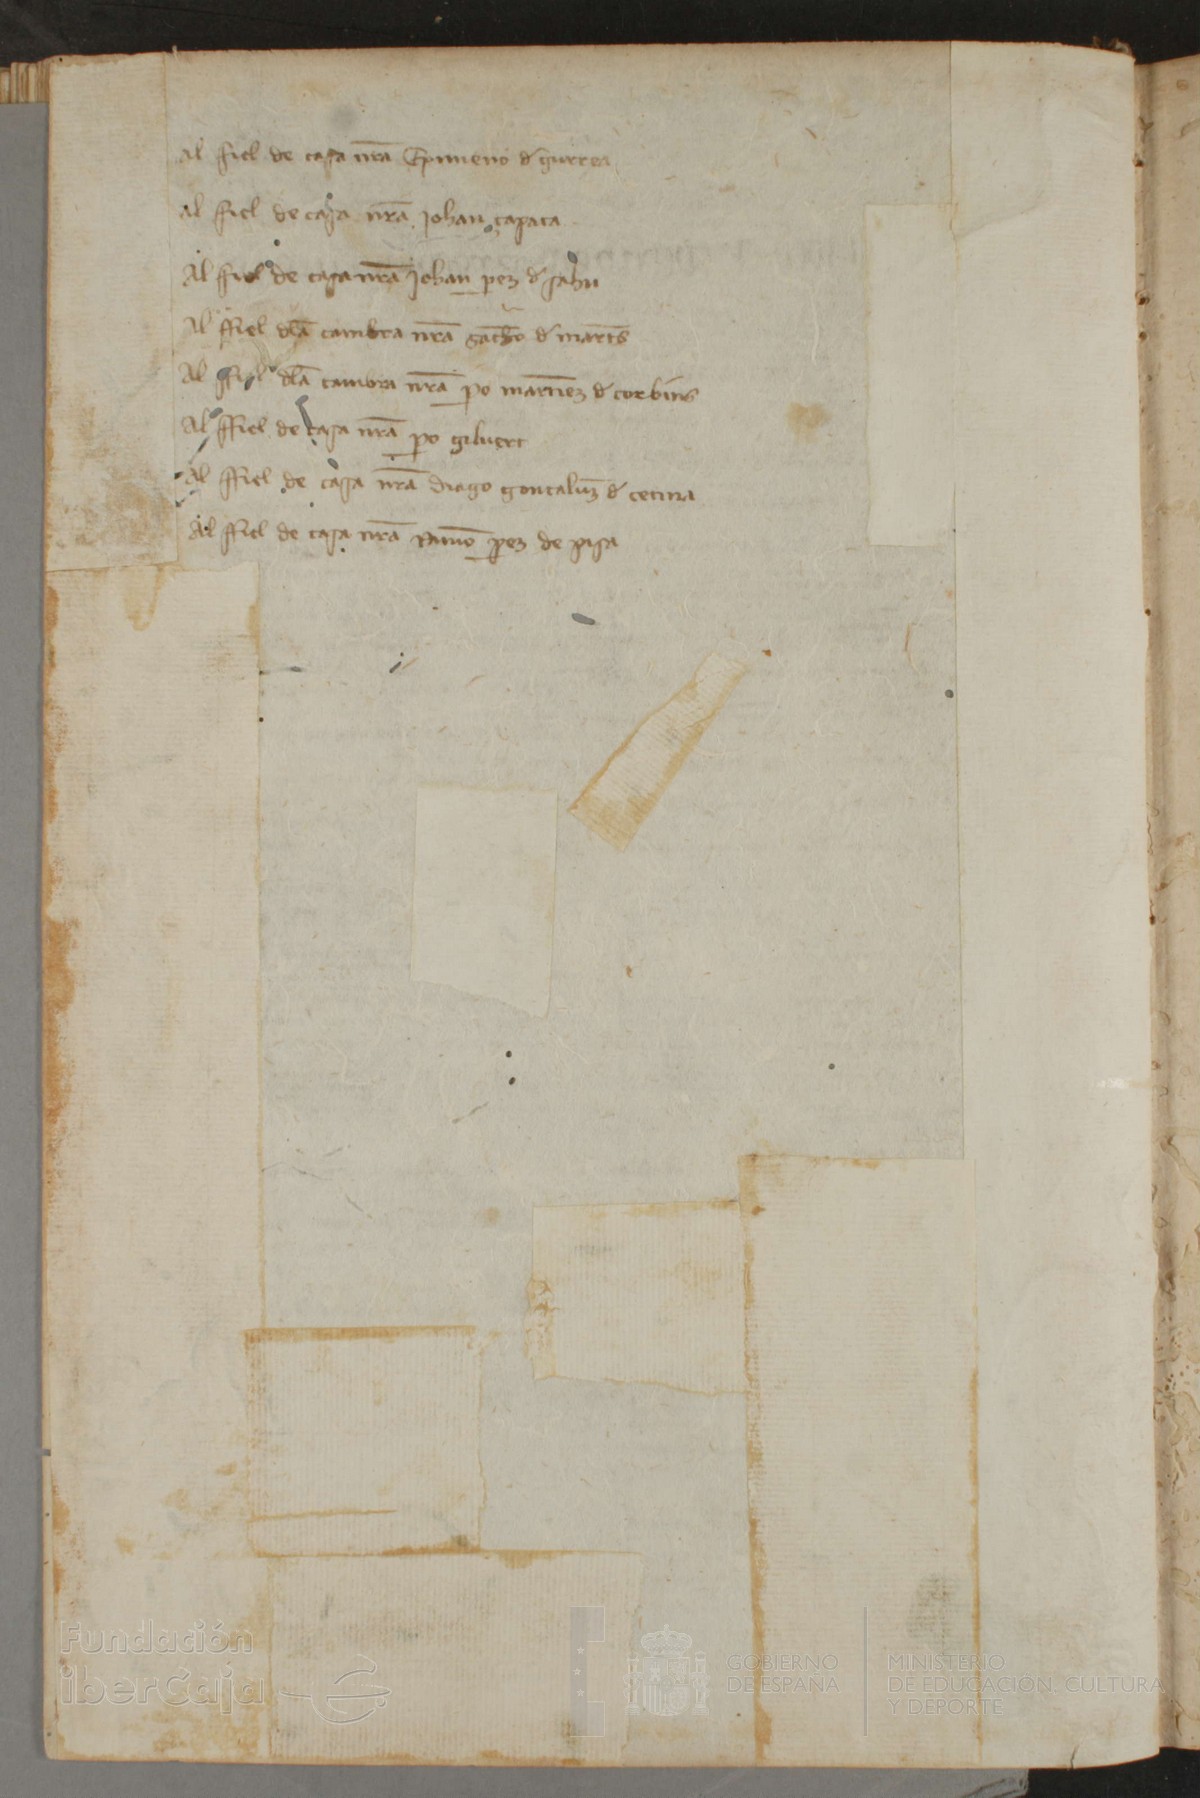 Al fiel de casa nr̃a Eximeno d' gurrea
Al fiel de casa nr̃a Johan çapata
Al ffiel de casa nr̃a Johan perez d'
Al ffiel dla cambra nr̃a d' martes
Al ffiel dla cambra nr̃a po martinez d' corbins
Al ffiel de casa nr̃a po gilbert
Al ffiel de casa nr̃a diago goncaluez d' cetina
Al ffiel de casa nr̃a perez de pisa
Fundación
iberCaja
GOBIERNO
DE ESPAÑA
MINISTERIO
DE EDUCACIÓN, CULTURA
Y DEPORTE